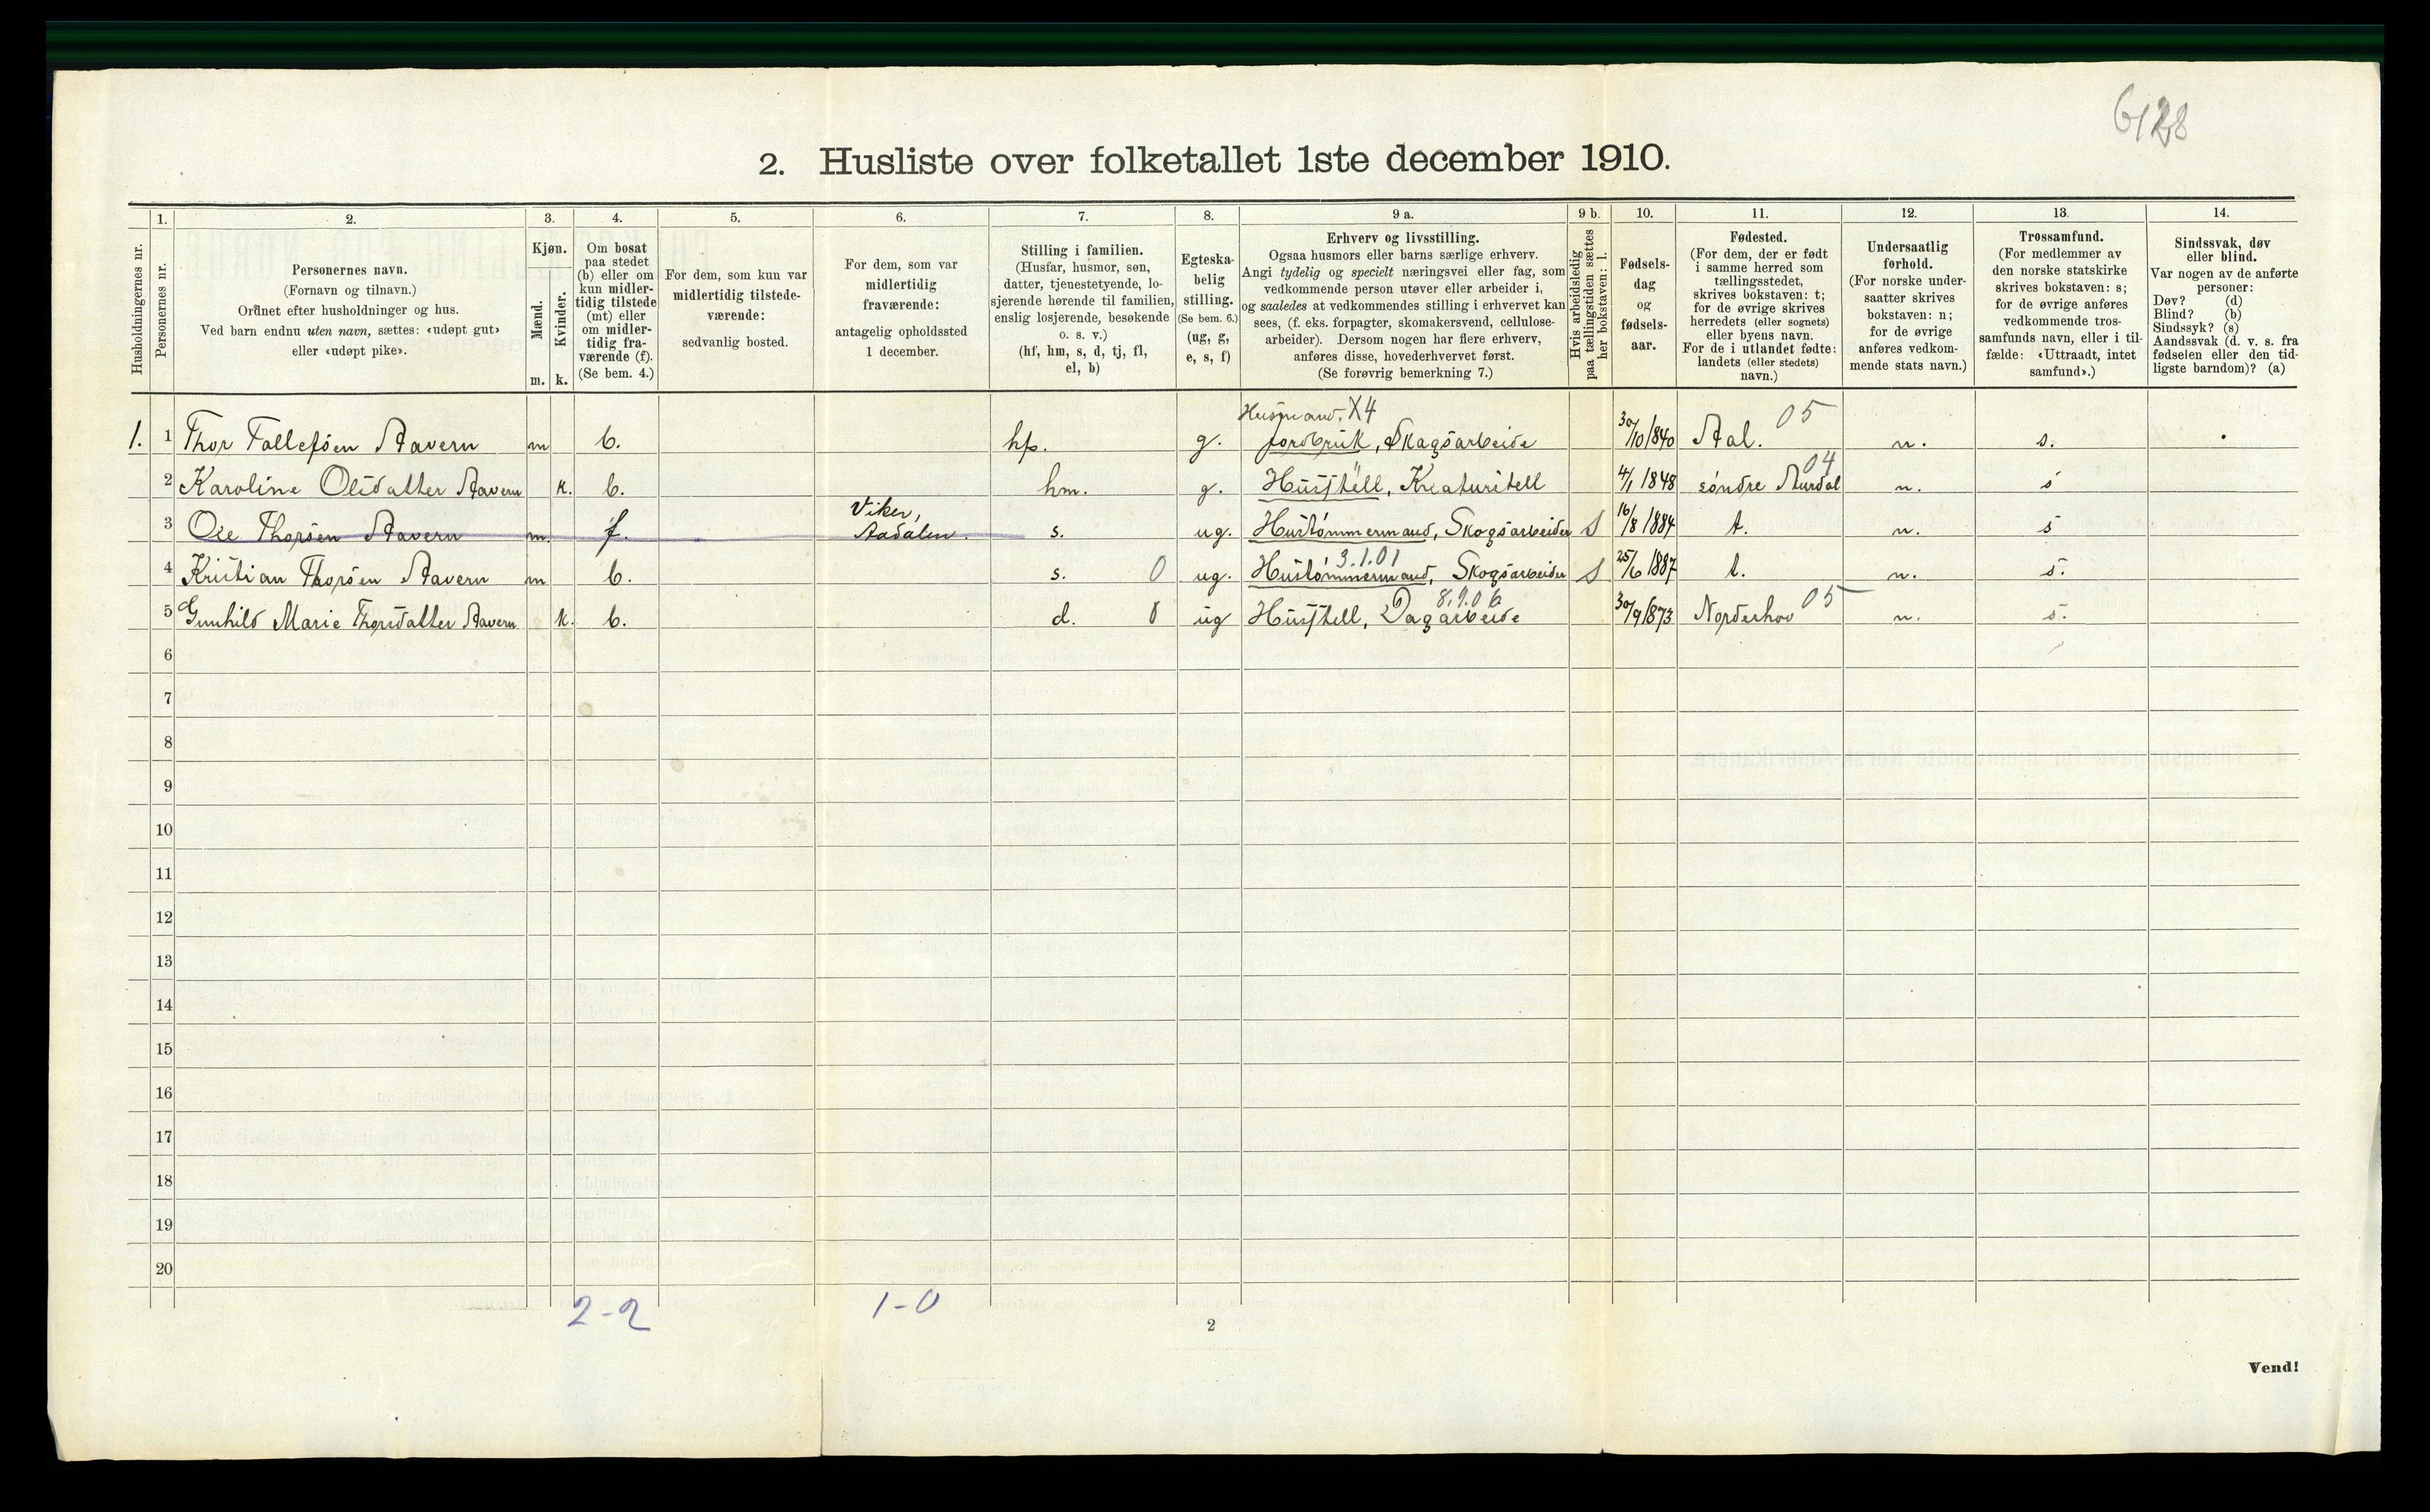 6128
2. Husliste over folketallet 1ste december 1910.
Husholdningernes nr.
1.
Personernes nr.
2.
Personernes navn.
(Fornavn og tilnavn.)
Ordnet efter husholdninger og hus.
Ved barn endnu uten navn, sættes: «udøpt gut»
eller «udøpt pike».
3.
Kjøn.
Mænd.
m.
Kvinder.
k.
4.
Om bosat
paa stedet
(b) eller om
kun midler-
tidig tilstede
(mt) eller
om midler-
tidig fra-
værende (f).
(Se bem. 4.)
5.
For dem, som kun var
midlertidig tilstede-
værende:
sedvanlig bosted.
6.
For dem, som var
midlertidig
fraværende:
antagelig opholdssted
1 december.
7.
Stilling i familien.
(Husfar, husmor, søn,
datter, tjenestetyende, lo-
sjerende hørende til familien,
enslig losjerende, besøkende
o. s. v.)
(hf, hm, s, d, tj, fl,
el, b)
8.
Egteska-
belig
stilling.
(Se bem. 6.)
(ug, g,
e, s, f)
9 a.
Erhverv og livsstilling.
Ogsaa husmors eller barns særlige erhverv.
Angi tydelig og specielt næringsvei eller fag, som
vedkommende person utøver eller arbeider i,
og saaledes at vedkommendes stilling i erhvervet kan
sees, (f. eks. forpagter, skomakersvend, cellulose-
arbeider). Dersom nogen har flere erhverv,
anføres disse, hovederhvervet først.
(Se forøvrig bemerkning 7.)
9 b.
Hvis arbeidsledig
paa tællingstiden sættes
her bokstaven: l.
10.
Fødsels-
dag
og
fødsels-
aar.
11.
Fødested.
(For dem, der er født
i samme herred som
tællingsstedet,
skrives bokstaven: t;
for de øvrige skrives
herredets (eller sognets)
eller byens navn.
For de i utlandet fødte:
landets (eller stedets)
navn.)
12.
Undersaatlig
forhold.
(For norske under-
saatter skrives
bokstaven: n;
for de øvrige
anføres vedkom-
mende stats navn.)
13.
Trossamfund.
(For medlemmer av
den norske statskirke
skrives bokstaven: s;
for de øvrige anføres
vedkommende tros-
samfunds navn, eller i til-
fælde: «Uttraadt, intet
samfund».)
14.
Sindssvak, døv
eller blind.
Var nogen av de anførte
personer:
Døv? (d)
Blind? (b)
Sindssyk? (s)
Aandssvak (d. v. s. fra
fødselen eller den tid-
ligste barndom)? (a)
Husmand, X4 05
1. 1 Thor Tollefsen Stavern m b. hf. g. jordbruk, Skogsarbeide 30/10 1840 Aal. n. s.
04
2 Karoline Olsdatter Stavern k. b. hm. g. Husstell, Kreaturstell 4/1 1848 søndre Aurdal n. s
Viker,
3 Ole Thorsen Stavern m. f. Aadalen. s. ug. Hustømmermand, Skogsarbeider S 16/8 1884 t. n. s
3.1.01
4 Kristian Thorsen Stavern m b. s. 0 ug. Hustømmermand, Skogsarbeider S 25/6 1887 t. n. s.
8.9.06 05
5 Gunhild Marie Thorsdatter Stavern k. b. d. 0 ug Husstell, Dagarbeide 30/9 1873 Norderhov n. s.
6
7
8
9
10
11
12
13
14
15
16
17
18
19
20
2-2 1-0
2
Vend!